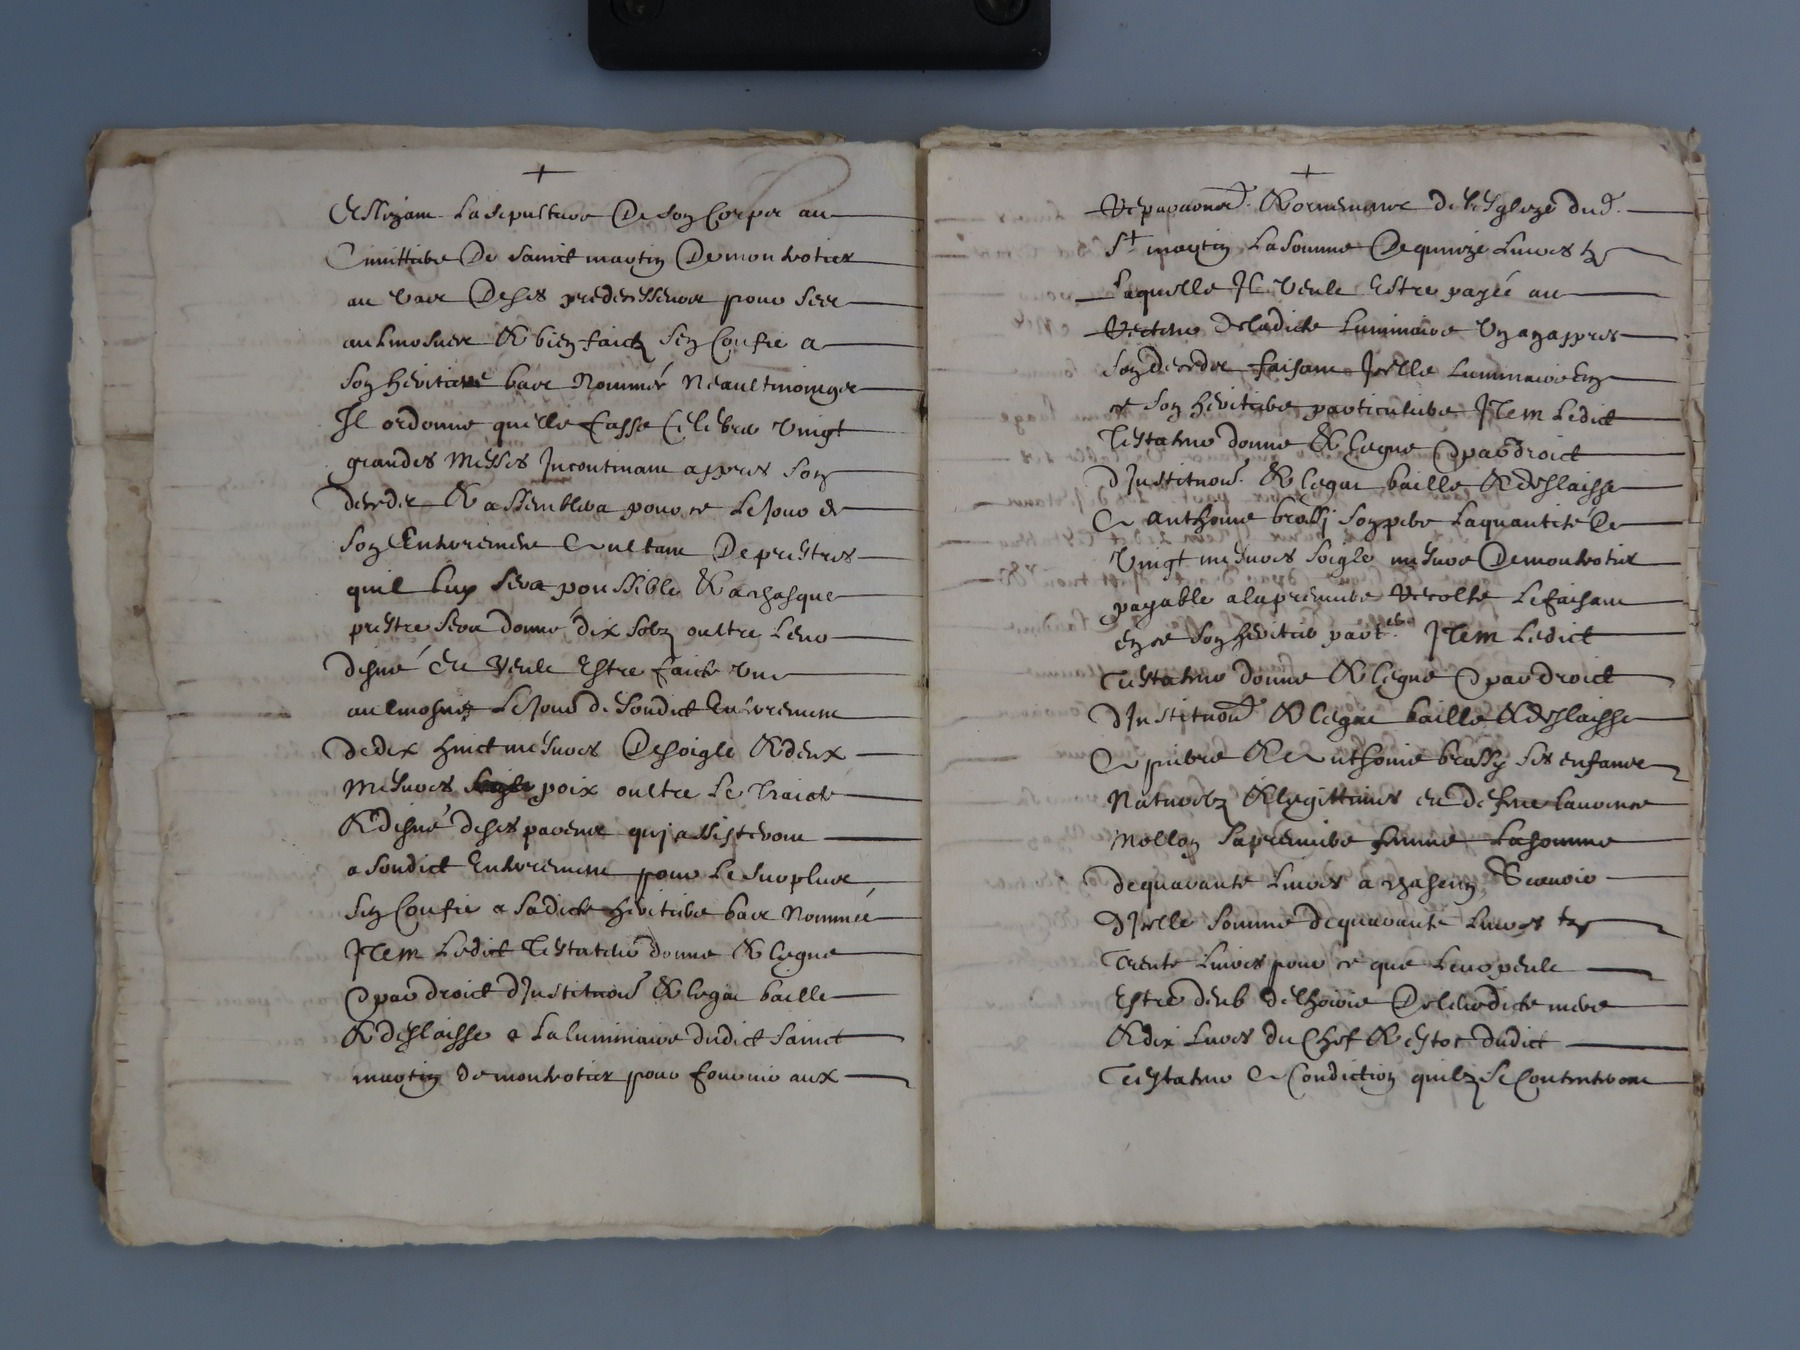 +
Eslizant La sepulture De son Corps au
Cimittiere De sainct martin Demonhotier
au vase Deses predecesseurs pour ses
aulmosnes & bien faictz sen Confie a
son heritiere bas Nommée
Il ordonne quelle fasse Celebrer vingt
grandes Messes Incontinant appres son
decedz & assemblera pour ce Le Jour de
son Enterrement Aultant De prestres
quil luy sera poussible & a chasque
prestre sera donne dix solz oultre Leur
disné Et veult Estre faicte une
aulmosne Le Jour de Sondict Enterrement
de dix huict mesures De soigle & deux
Mesures poix oultre Le traict
& disné de ses parens quj assisteront
a Sondict Enterrement pour Le surplus
sen Confie a Sadicte heritiere bas Nommée
Item Ledict Testateur donne & legue
Et par droict dInstitution & legat baille
& deslaisse a La luminaire dudict Sainct
martin de monhotier pour fournir aux
+
Reparations & ornemens de lesglize dud.
St martin La Somme De quinze Livres tz
Laquelle Il veult Estre payée au
Recteur de ladicte Luminaire un an appres
son decedz faisant Icelle Luminaire en
ce son heritiere particuliere Item Ledict
Testateur donne & legue Et par droict
dInstitution & legat baille & deslaisse
A anthoine brassj son pere La quantité De
vingt mesures soigle mesure Demonhotier
payable a la premiere Recolte Le faisant
en ce son heritier part.er Item Ledict
Testateur donne & legue Et par droict
dInstitution & legat baille & deslaisse
A pierre & Anthoine brassy ses enfans
Naturelz & legittimes et de feue laurence
Mollon Sa premiere femme La somme
de quarante Livres a chascun Scavoir
dIcelle somme de quarante Livres tz
Trente Livres pour ce que Leur peult
Estre deub de lhoirie De leurdicte mere
& dix Livres du Chef & estoc dudict
Testateur A Condiction quilz se Contenteront